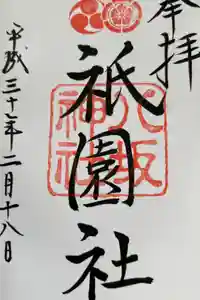 奉拝
祇園社
八坂神社
平成三十年二月十八日